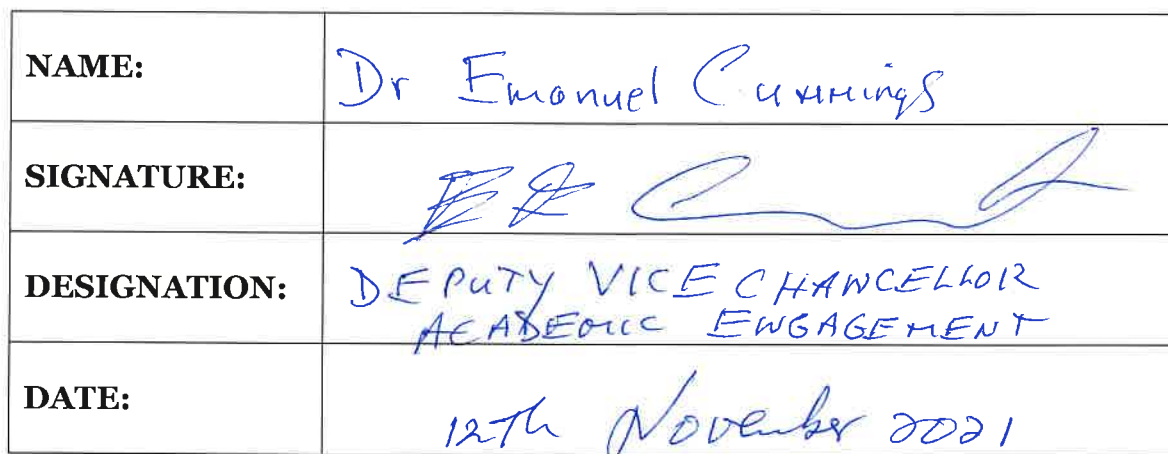 NAME: Dr Emanuel Cummings
SIGNATURE:
DESIGNATION: DEPUTY VICE CHANCELLOR
ACADEMIC ENGAGEMENT
DATE: 12th November 2021